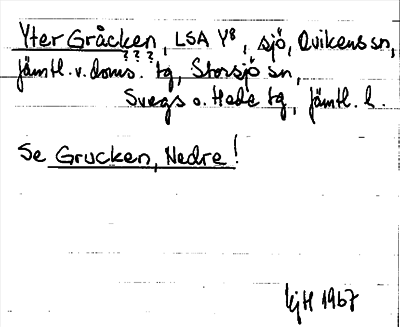 Yter Gråcken, LSA Y8, sjö, Ovikens sn,
? ? ?
Jämtl. v. doms. tg, Storsjö sn,
Svegs o. Hede tg, Jämtl. l.
Se Grucken, Nedre!
KjH 1967